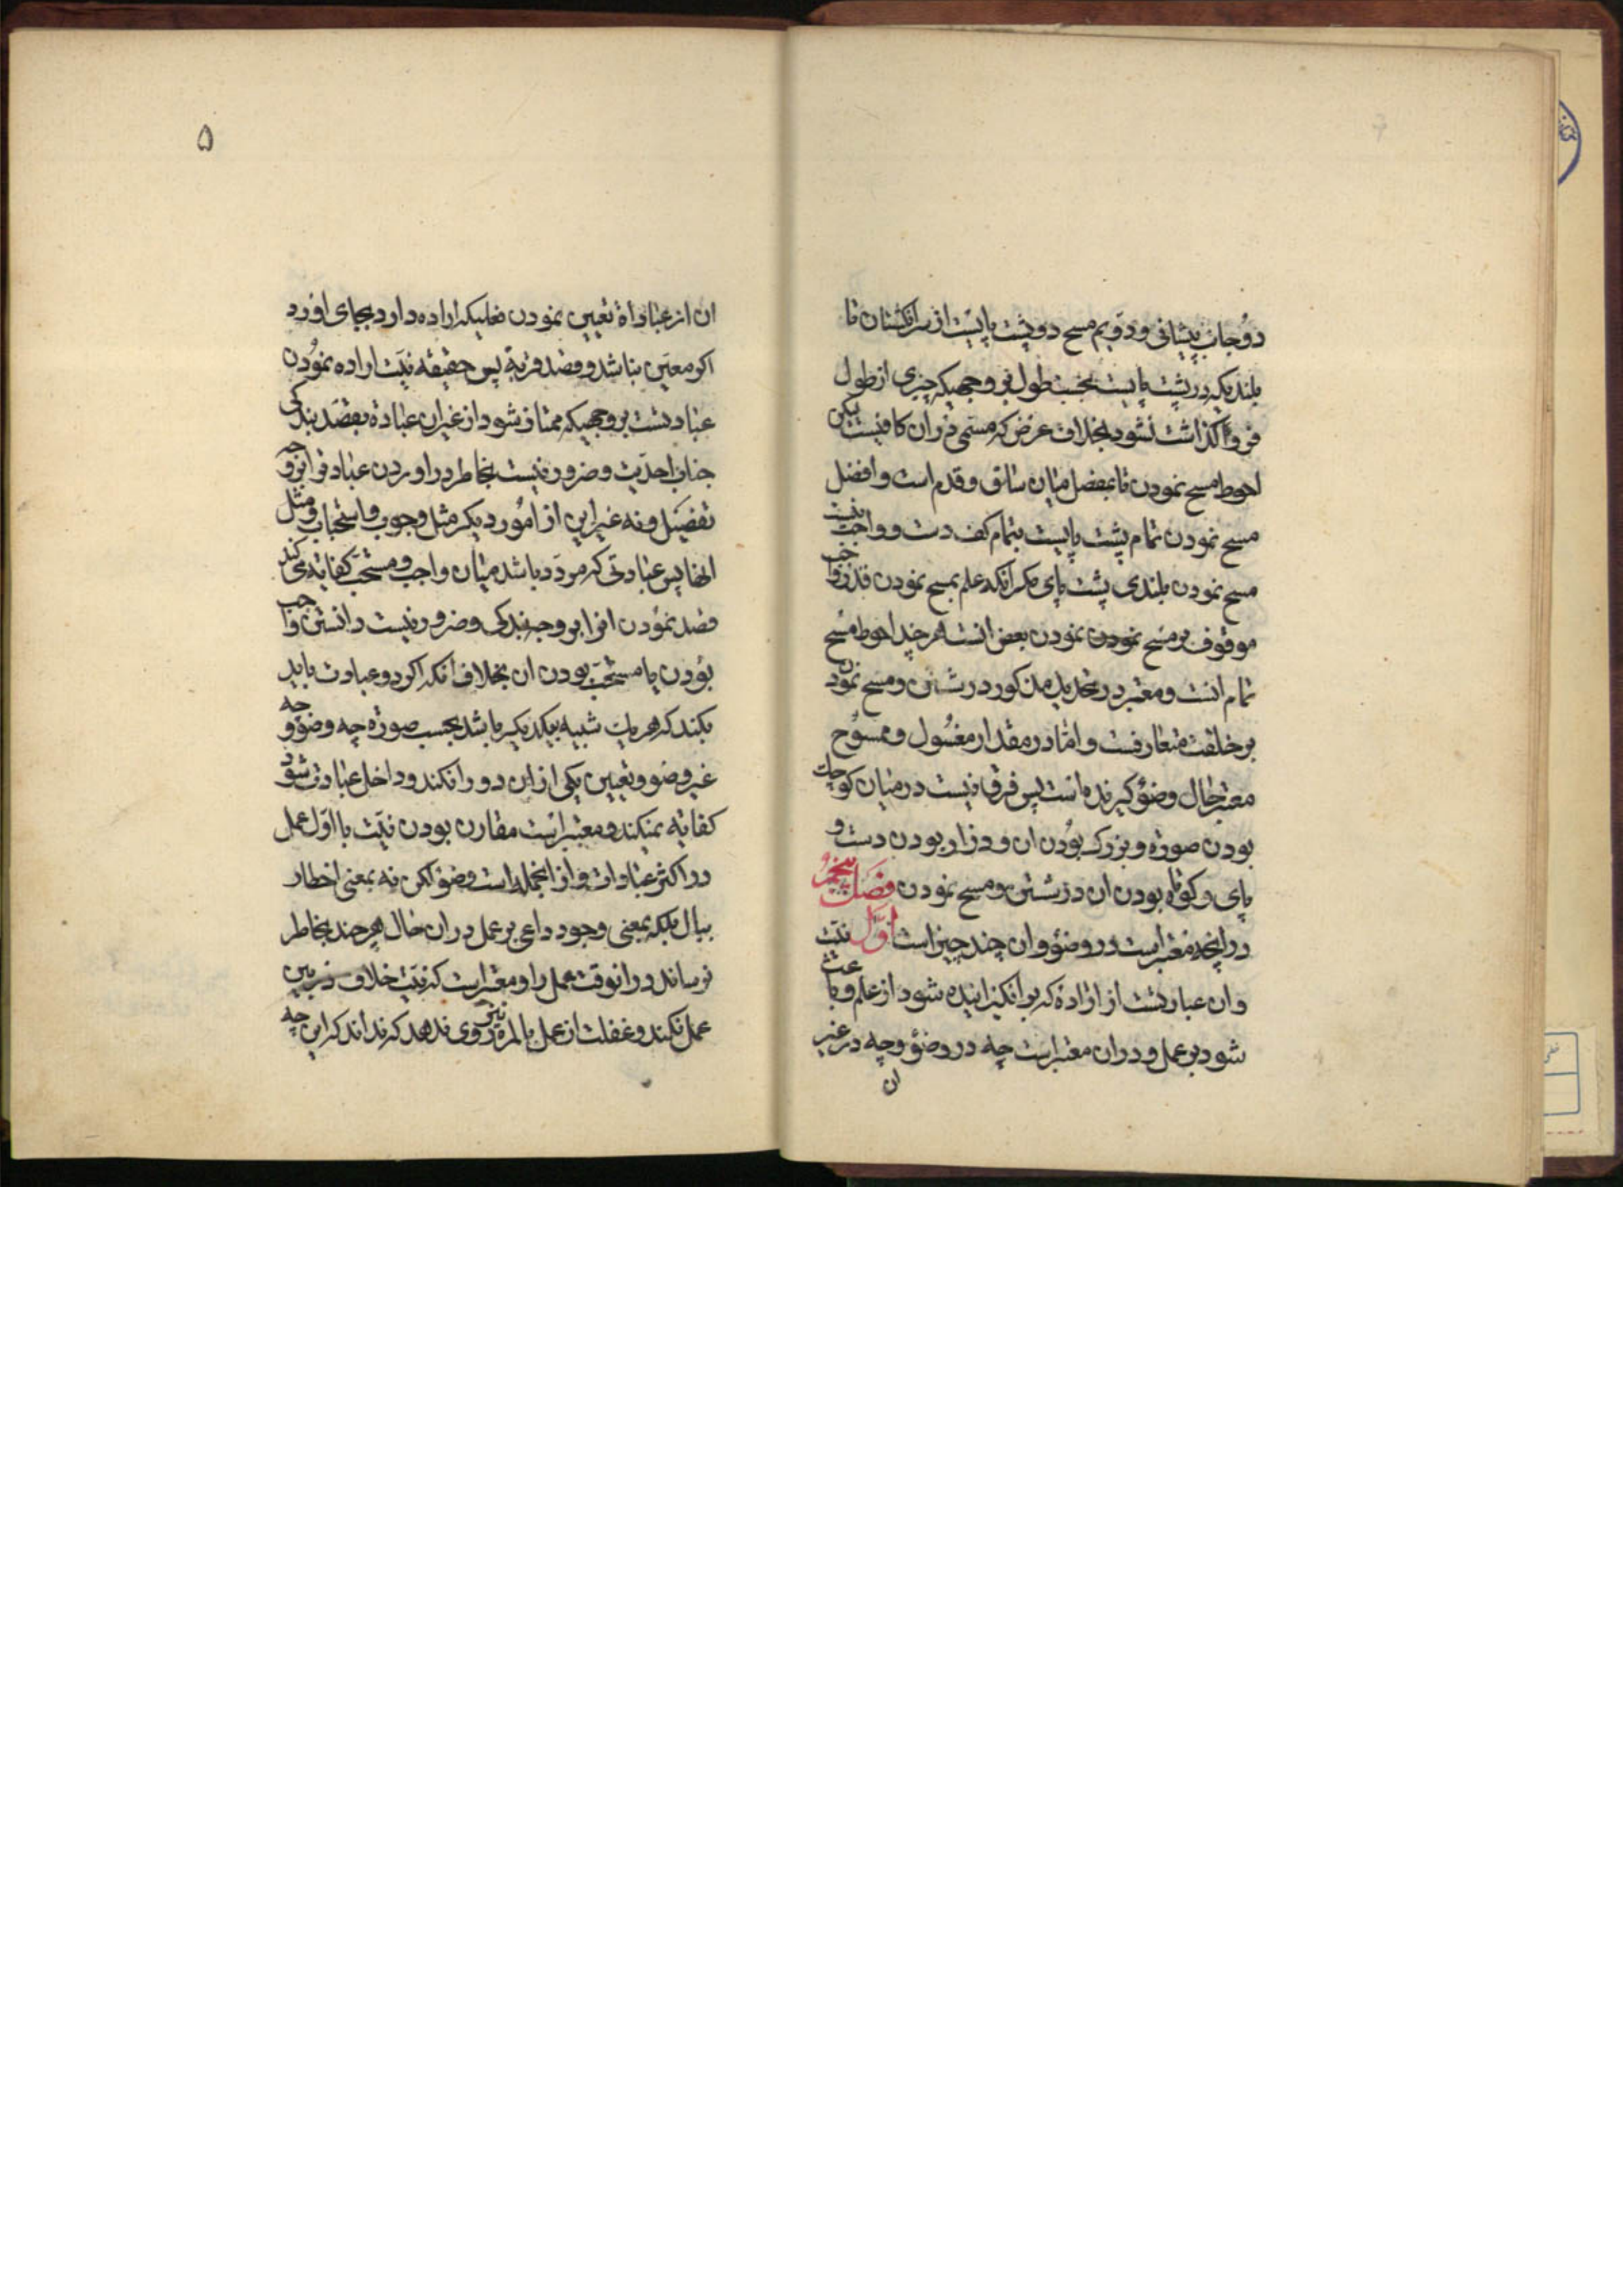 دو جانب پیشانی و دویم مسح دو پشت پا است از سر انکشتان تا
بلندیکه در پشت پا است بحسب طول بر وجهیکه چیزی از طول
فرو کذاشت نشود بخلاف عرض که مسمی در ان کافیست لیکن
احوط مسح نمودن تا مفصل میان ساق و قدم است و افضل
مسح نمودن تمام پشت پا است بتمام کف دست و واجب نیست
مسح نمودن بلندی پشت پای مکر انکه علم بمسح نمودن قدر واجب
موقوف بر مسح نمودن نمودن بعض انست هر چند احوط مسح
تمام انست و معتبر در تحدید مذکور در شستن و مسح نمودن
بر خلقت متعارفست و اما در مقدار مغسول و ممسوح
معتبر حال وضو کیرنده است پس فرق نیست در میان کوچک
بودن صورة و بزرک بودن ان و دراز بودن دست و
پای و کوتاه بودن ان در شستن و مسح نمودن فصل پنجم
در انچه معتبر است در وضو و ان چند چیز است اول نیت
و ان عبارتست از ارادهٔ که بر انکیزانیده شود از علم و باعث
شود بر عمل و در ان معتبر است چه در وضو و چه در غیر
ان
۵
ان از عبادات تعیین نمودن فعلیکه اراده دارد بجای اورد
اکر معین نباشد و قصد قربة پس حقیقه نیت اراده نمودن
عبادتست بر وجهیکه ممتاز شود از غیر ان عبادة بقصد بندکی
جناب احدیت و ضرور نیست بخاطر در اوردن عبادة را بر وجه
تفصیل و نه غیر این از امور دیکر مثل وجوب و استحباب و مثل
انها پس عبادتی که مردد باشد میان واجب و مستحب کفایة می کند
قصد نمودن انرا بر وجه بندکی و ضرور نیست دانستن واجب
بودن یا مستحب بودن ان بخلاف انکه اکر دو عبادت باید
بکند که هر یک شبیه بیکدیکر باشد بحسب صورة چه وضو و چه
غیر وضو و تعیین یکی از این دو را نکند و داخل عبادت شود
کفایة نمیکند و معتبر است مقارن بودن نیت با اول عمل
در اکثر عبادات و از انجمله است وضو لکن نه بمعنی اخطار
ببال بلکه بمعنی وجود داعی بر عمل در ان حال هر چند بخاطر
نرساند در انوقت عمل را و معتبر است که نیت خلاف در بین
عمل نکند و غفلت از عمل بالمره بنحوی روی ندهد که نداند که این چه